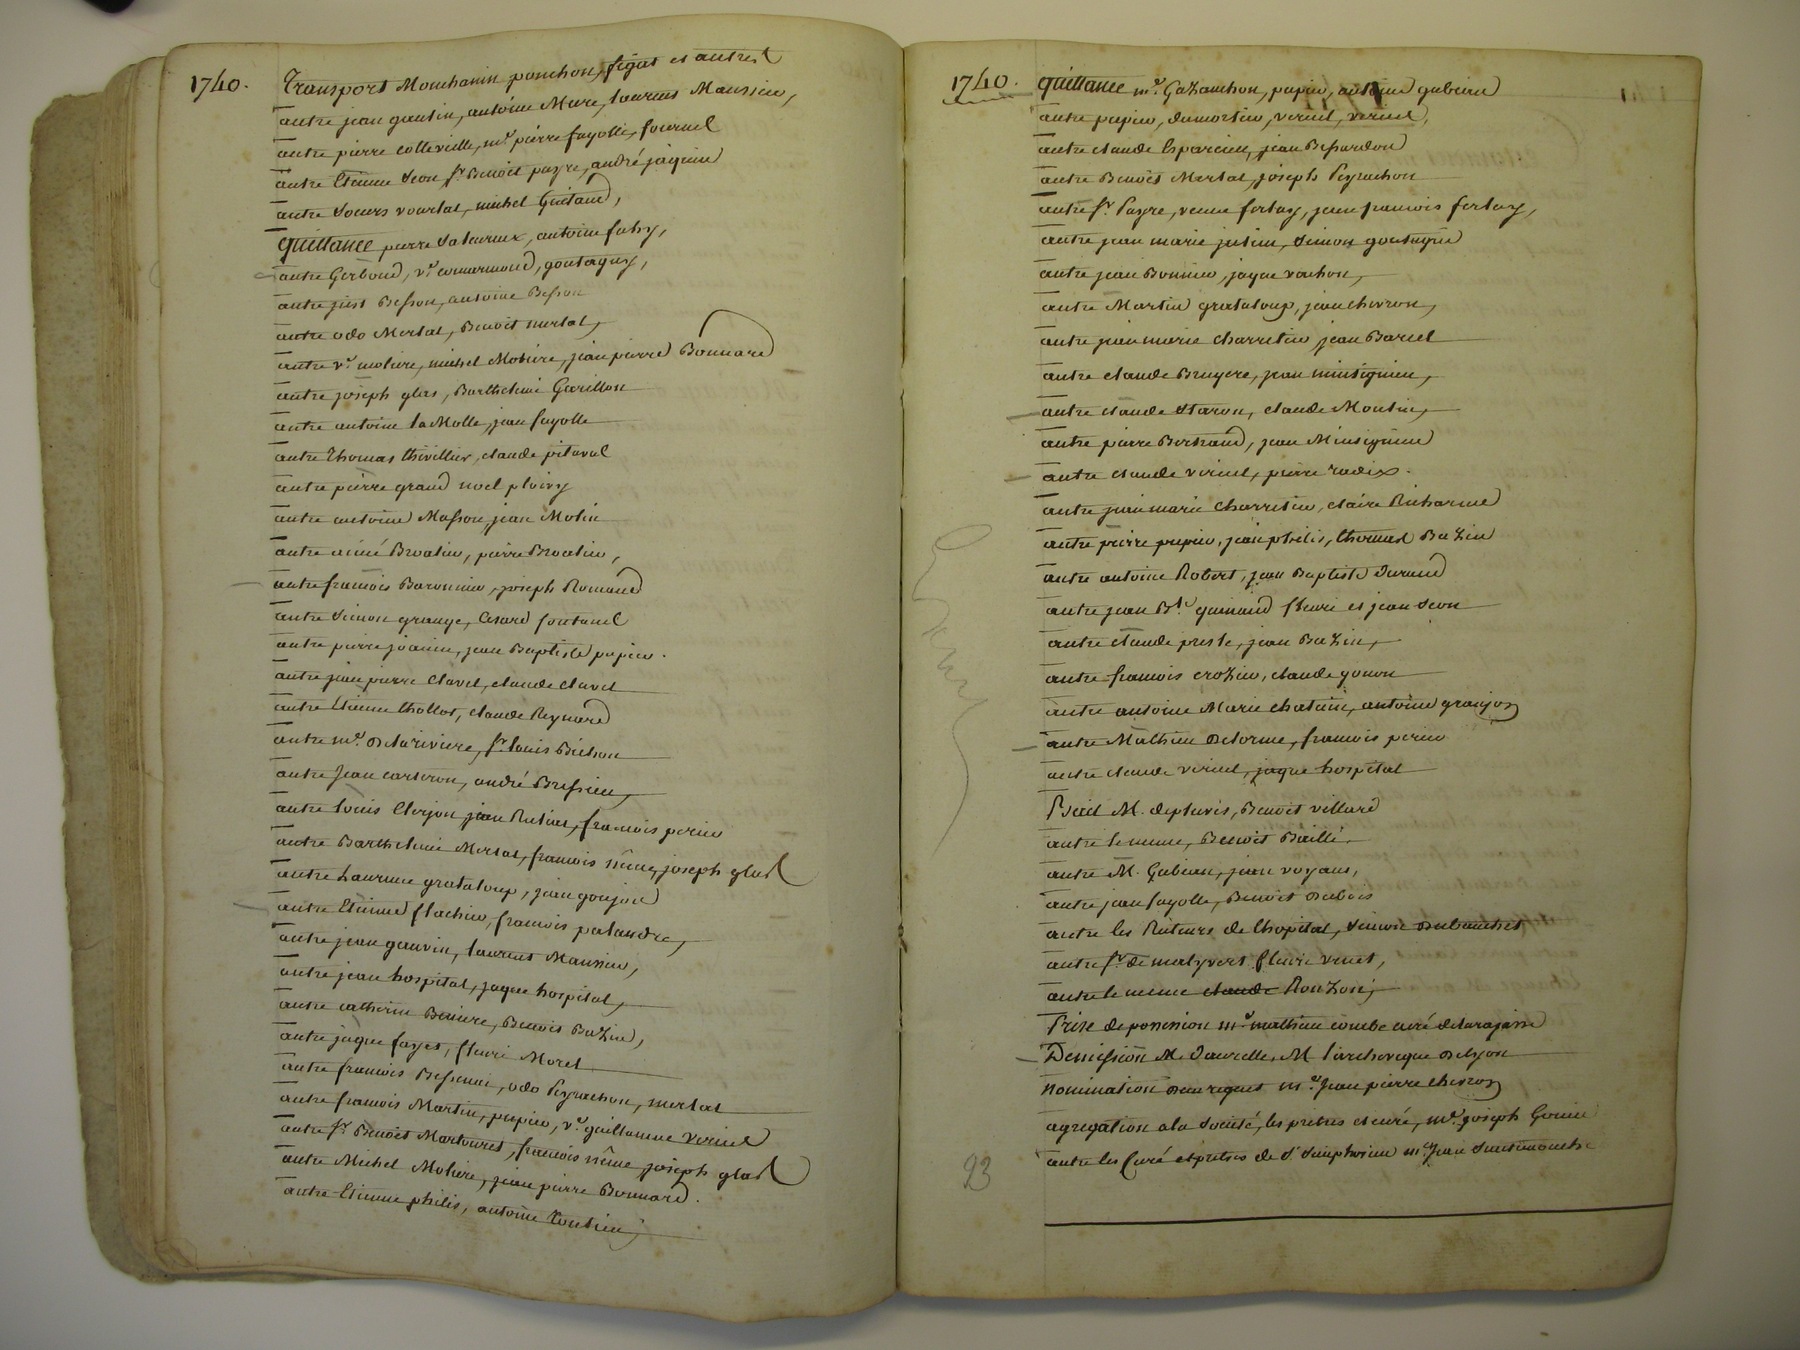 1740.
Transport Mouchanin ponchon, figat et autres
autre jean gautin, antoine Mure, laurens Manssieu,
autre pierre colleville, mr. pierre fayolle, fournel
autre Etienne Seon sr. Benoit payre, andré jaquine
autre Soeurs vourlat, michel Guitaud,
quittance pierre antoine fahy,
autre Gerboud, ve. coumarmond, goutagny,
autre just Besson, antoine Besson
autre odo Merlat, Benoit merlat,
autre ve. moliere, michel Moliere, jean pierre Bonnard
autre joseph glas, Barthelemi Garillon
autre antoine la Molle, jean fayolle
autre Thomas thivillier, claude pitaval
autre pierre grand noel ploivy
autre antoine Masson, jean Molin
autre aimé Broalier, pierre Broalier,
autre francois Baronnier, joseph Romand
autre Simon grange, Cesard fontanel
autre pierre joannin, jean Baptiste pupier.
autre jean pierre Clavel, claude Clavel
autre Etienne thollot, claude Reynard
autre mr. Delariviere, sr. louis Bichon
autre Jean carteron, andré Bressieu,
autre louis Clerjon, jean francois perier
autre Barthelemi Merlat, francois néme, joseph glas
autre Laurence grataloup, jean goujon
autre Etienne flachier, francois palandre,
autre jean gauvin, laurens Manssieu,
autre jean hospital, jaque hospital,
autre catherine Benoit Bazin,
autre jaque fayet, fleuri Morel
autre francois Bessenai, odo Peyrachon, merlat
autre francois Martin, pupier, ve. guillaume Veriel
autre sr. Benoit Martouret, francois néme joseph glas
autre Michel Moliere, jean pierre Bonnard.
autre Etienne philis, antoine
1740.
quittance mr. Gazanchon, pupier, antoine gubian
autre pupier, dumortier, vericel, vericel,
autre claude Esparcieu, jean Bessardon
autre Benoit Merlat, joseph Peyrachon
autre sr. Payre, veuve ferlay, jean francois ferlay,
autre jean marie justin, Simon goutagni
autre jean Bonnier, jaque vachon,
autre Martin grataloup, jean chevron,
autre jean marie Charretier, jean Bariel
autre claude Bruyere, jean minsignieu,
autre claude Staron, claude Moulin,
autre pierre Bertrand, jean Minsignieu
autre claude vericel, pierre radix.
autre jean marie Charretier, claire Richarme
autre pierre pupier, jean philis, thomas Bazin
autre antoine Robert, jean Baptiste Durand
autre jean Bte. guinand fleuri et jean Seon
autre claude preste, jean Bazin,
autre francois crozier, claude gonon
autre antoine Marie chatain, antoine granjon
autre Mathieu Delorme, francois perier
autre claude vericel, jaque hospital
Bail M. depluvis, Benoit villard
autre le meme, Benoit Baillé.
autre M. Gubian, jean voyant,
autre jean fayolle, Benoit Dubois
autre les Recteurs de lhopital, Simon Dubanchet
autre sr. de malyvert fleuri venet,
autre le meme claude Ronzon,
Prise de possession mr. mathieu combe curé de larajasse
Demission M. Daurelle, M. l'archeveque De lyon
nomination mr. Jean pierre Chevron
agregation a la Societé, les pretres et curé, mr. joseph Gonin
autre les Curé et pretres de St. Simphorien mr. Jean
93